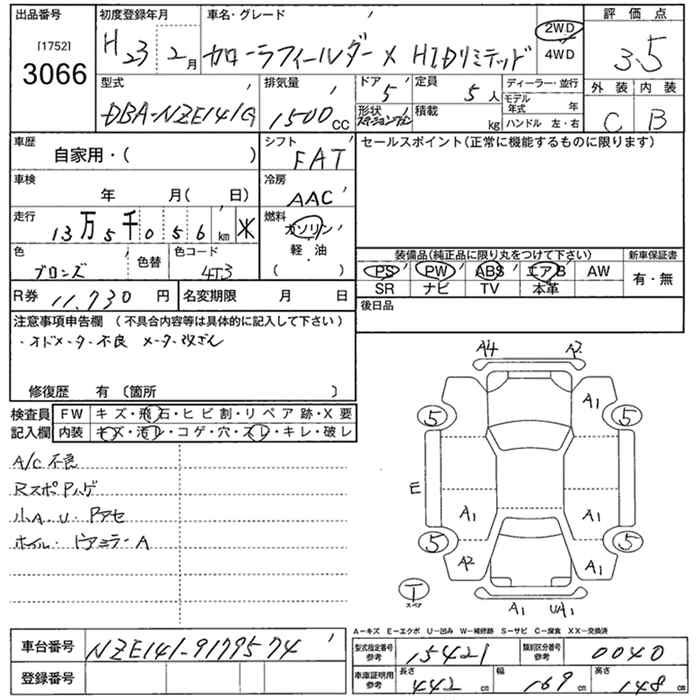 出品番号
[1752]
3066
初度登録年月
H 23 2月
車名・グレード
カローラフィールダー X HIDリミテッド
2WD
4WD
評価点
3.5
型式
DBA-NZE141G
排気量
1500cc
ドア
5
定員
5人
形状
ステーションワゴン
積載
kg
ディーラー・並行
モデル年式 年
ハンドル 左・右
外装 内装
C B
車歴
自家用・( )
シフト
FAT
セールスポイント(正常に機能するものに限ります)
車検
年 月( 日)
冷房
AAC
走行
13万5千056km
燃料
ガソリン
軽・油
( )
色
ブロンズ
色替
色コード
4T3
装備品(純正品に限り丸をつけて下さい)
新車保証書
PS PW ABS エアB AW
有・無
SR ナビ TV 本革
R券 11,730円
名変期限 月 日
後日品
注意事項申告欄 (不具合内容等は具体的に記入して下さい)
・オドメーター不良 メーター改ざん
修復歴 有 〔箇所 〕
検査員記入欄
FW キズ・飛石・ヒビ割・リペア跡・X要
内装 キズ・汚レ・コゲ・穴・スレ・キレ・破レ
A/C不良
RスポPハゲ
小A.U.Pアセ
ホイル・ドアミラーA
A4 A2
A1
5 5
E
A1 A1
5 5
A2 A1
T
スペア
A1 UA1
A−キズ E−エクボ U−凹み W−補修跡 S−サビ C−腐食 XX−交換済
車台番号
NZE141-9179574
登録番号
型式指定番号 参考
15421
類別区分番号 参考
0040
車庫証明用 参考
長さ 442cm
幅 169cm
高さ 148cm